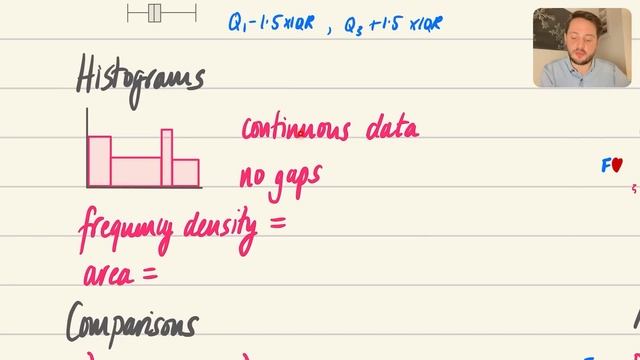 Q₁-1.5×IQR , Q₃+1.5×IQR
Histograms
continuous data
no gaps
F♥
frequency density =
area =
Comparisons